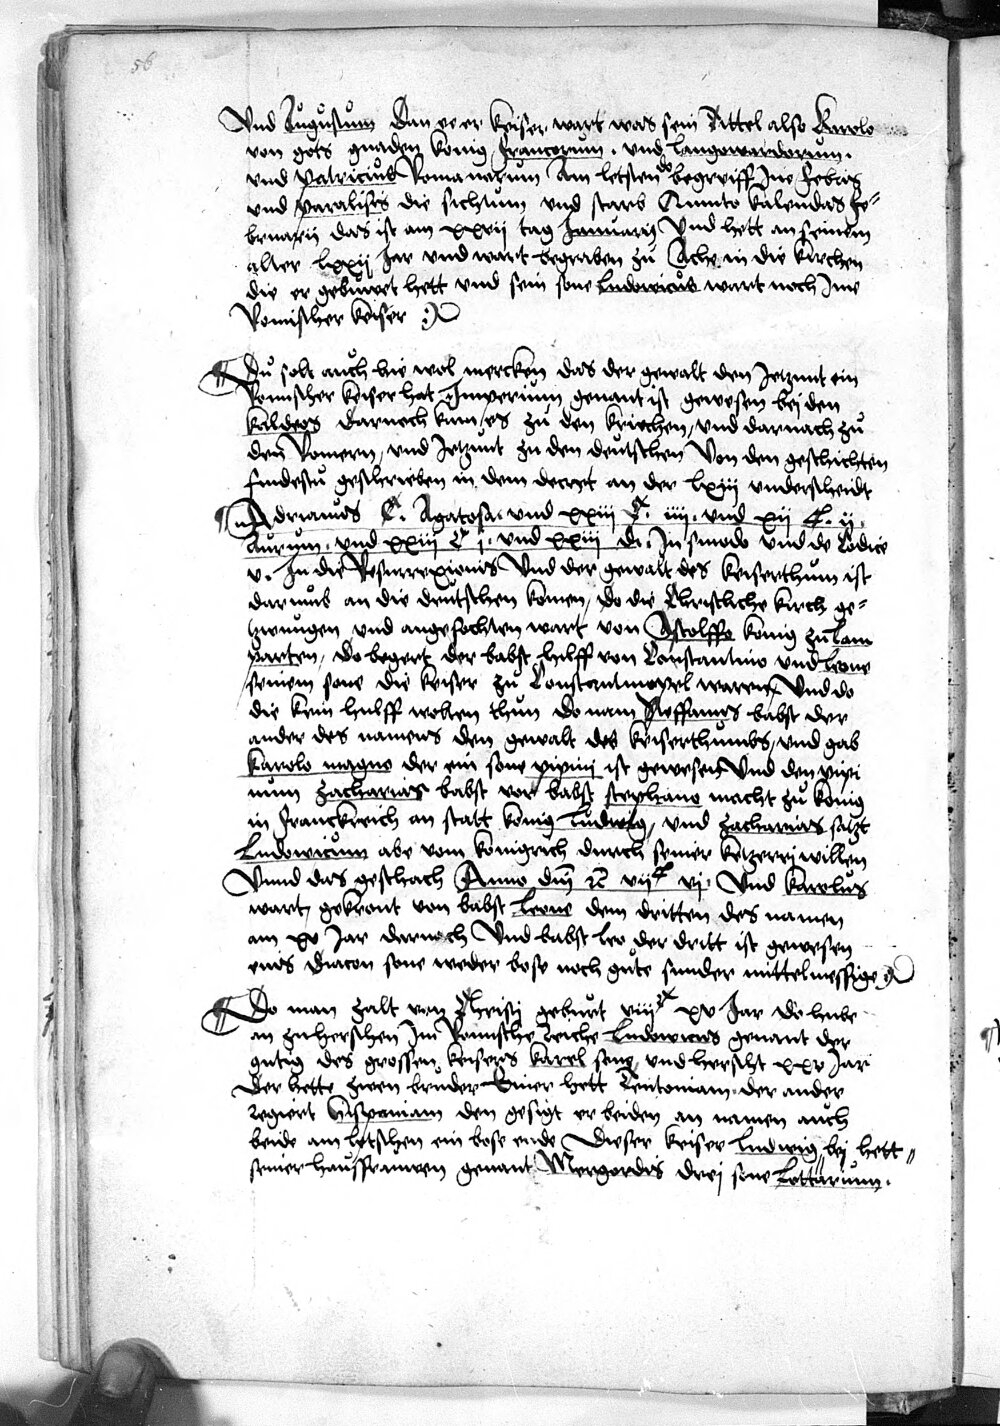 56
Vnd Augustum Dan ee er keiser wart was sein Tittel also Karolo
von gots gnaden konig francorum . vnd langowardorum .
vnd patricius Romanorum Am letsten do begreiff Jne febris
vnd paralisis die sichtum vnd starb Quinto kalendas fe⸗
bruarij das ist am xxvij tag Januarij Vnd hett an seinem
alter lxxij Jar vnd wart begraben zu Ache in die kirchen
die er gebuwet hett vnd sein sone ludowicus wart noch Jme
Romischer keiser
Du solt auch hie wol mercken das der gewalt den Jetzunt ein
Romischer keiser hat Imperium genant ist gewesen bej den
kaldeos darnoch kam es zu den kriechen, vnd darnach zu
den Romern, vnd Jetzunt zu den deutschen Von den geschichten
findestu geschrieben in dem decret an der lxiij vnderscheidt
Adrianus C. Agatosa. vnd xxiij C. iiij. vnd xij C. ij.
Aurum. vnd xxiij C j. vnd xxiij di. In sinodo vnd de Codice
v. In die Resurrexionis Vnd der gewalt des keiserthum ist
darumb an die deutschen komen, do die Christliche kirch ge⸗
zwungen vnd angefochten wart von Astolffo konig zu lam
parten, do begert der babst hilff von Constantino vnd leone
seinem sone die keiser zu Constantinopel waren, Vnd do
die kein hulff wolten thun do nam Steffanus babst der
ander des namens den gewalt des keiserthumbs, vnd gab
karolo magno der ein sone pipini ist gewesen Vnd den pipi
num zacharias babst vor babst stephano macht zu konig
in Franckreich an statt konig ludwig, vnd zacharias satzt
Ludowicum abe vom konigrich durch seiner ketzerej willen
Vnnd das geschach Anno dm̄ vijC vj. Vnd karolus
wart gekront von babst leone dem dritten des namen
am xv Jar darnoch Vnd babst leo der dritt ist gewesen
eins diacon sone weder bose noch gute sunder mittelmessige
Do man zalt von Christi geburt viijC xv Jar do hube
an zuherschen Im Romische Reiche Ludowicus genant der
gutig des grossen keisers karel sone, vnd herscht xxv Jar
der hette zwen bruder Einer hett Teutoniam. der ander
regiert hispaniam den gesigt er beiden an namen auch
beide am letschen ein bose ende Dieser keiser ludwig, bej hett
seiner haussfrauwen genant Mergardis drej sone Lottarium.